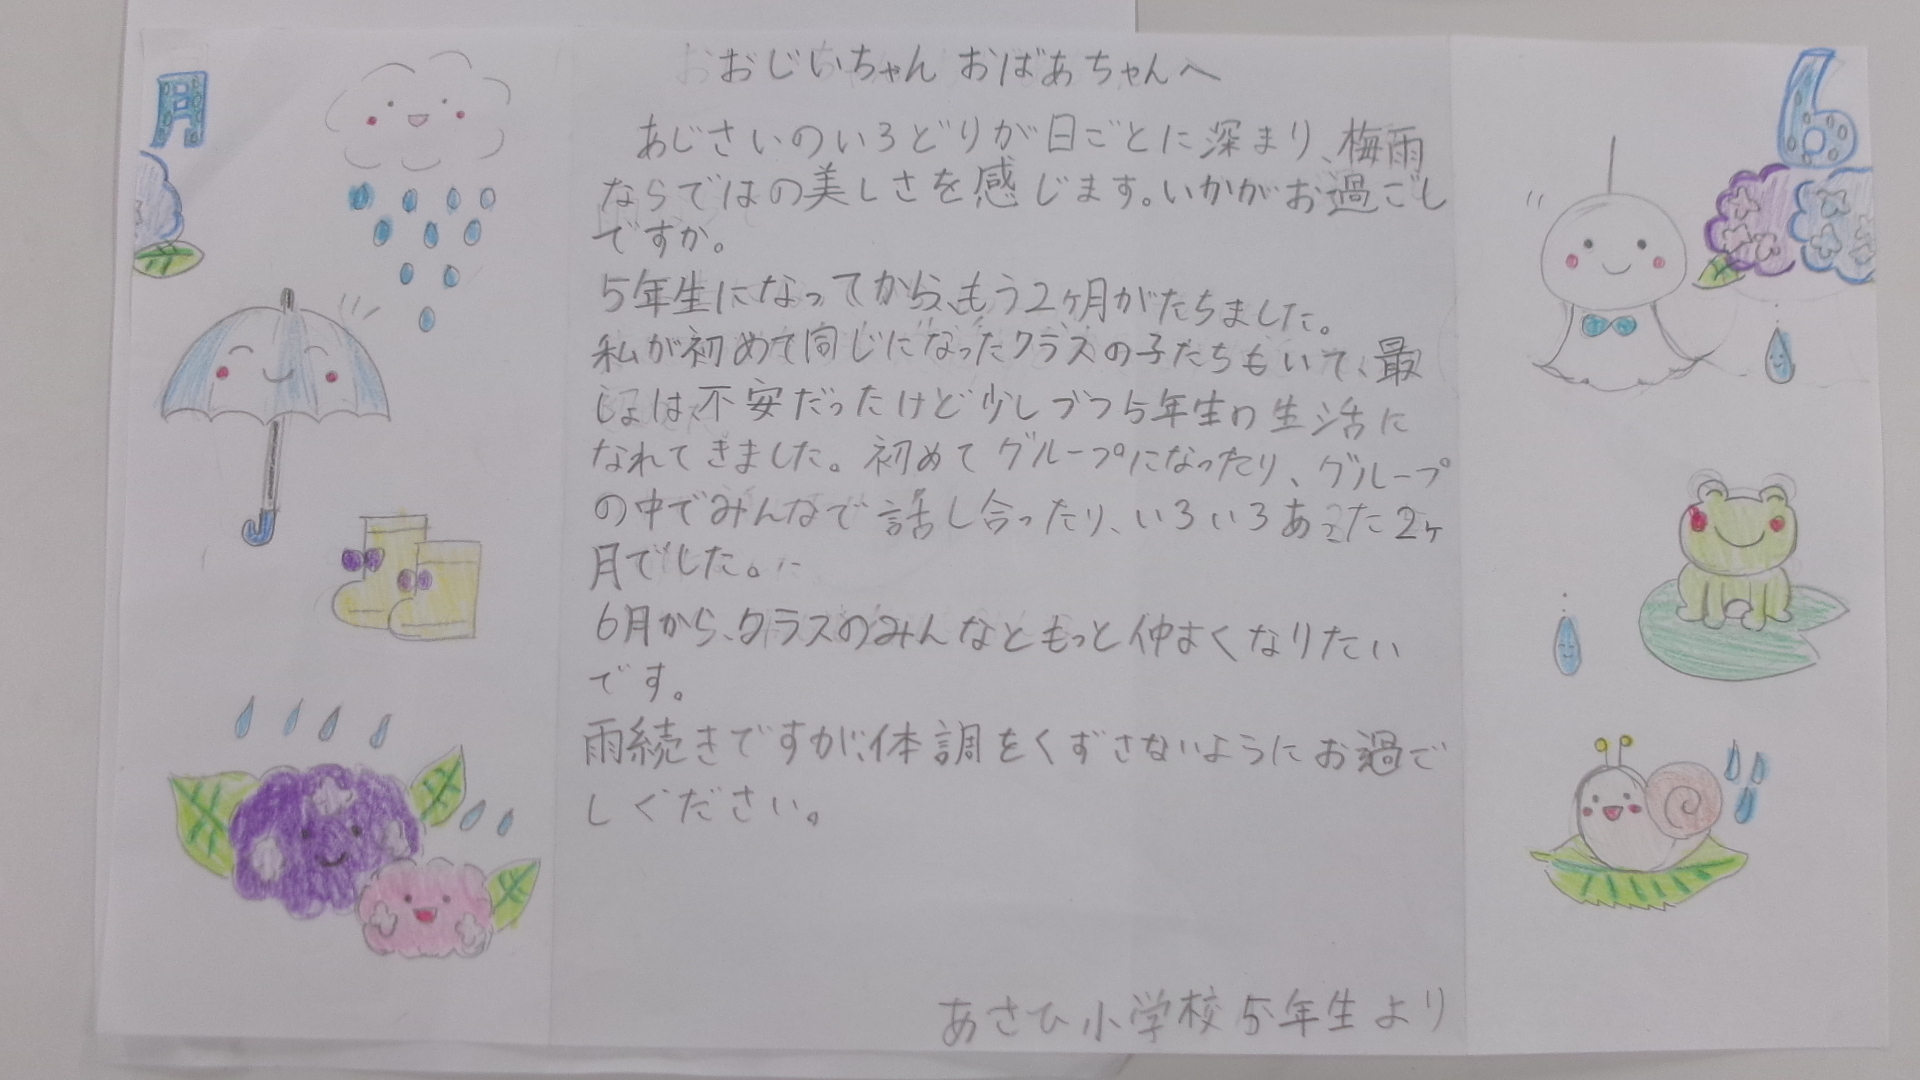 おじいちゃん おばあちゃんへ
あじさいのいろどりが日ごとに深まり、梅雨
ならではの美しさを感じます。いかがお過ごし
ですか。
5年生になってから、もう2ヶ月がたちました。
私が初めて同じになったクラスの子たちもいて、最
しょは不安だったけど少しづつ5年生の生活に
なれてきました。初めてグループになったり、グループ
の中でみんなで話し合ったり、いろいろあった2ヶ
月でした。
6月から、クラスのみんなともっと仲よくなりたい
です。
雨続きですが、体調をくずさないようにお過ごで
しください。
あさひ小学校5年生より
6
月